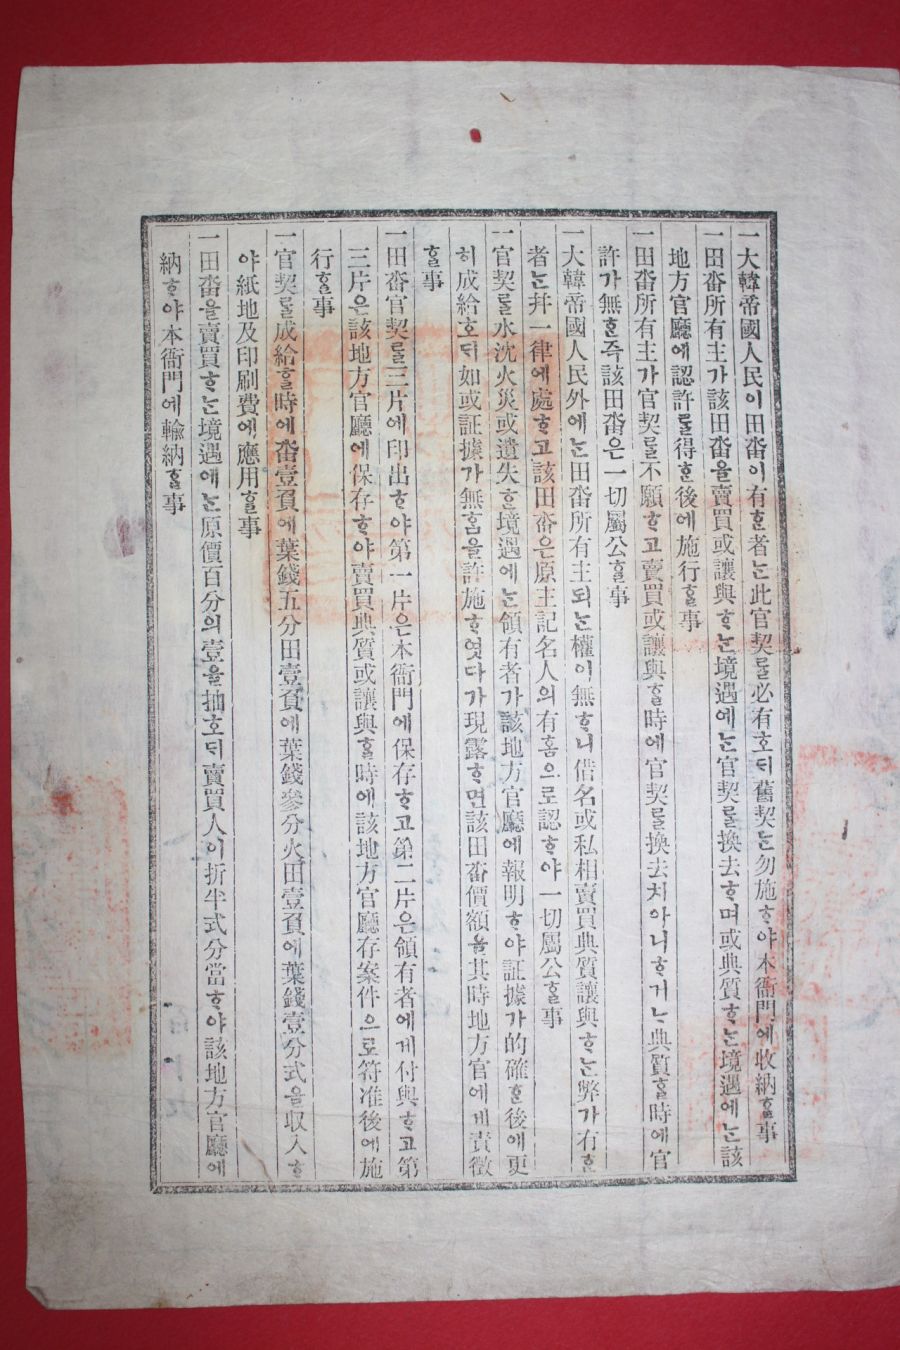 一大韓帝國人民이田畓이有ᄒᆞᆫ者ᄂᆞᆫ此官契ᄅᆞᆯ必有호ᄃᆡ舊契ᄂᆞᆫ勿施ᄒᆞ야本衙門에收納ᄒᆞᆯ事
一田畓所有主가該田畓을賣買或讓與ᄒᆞᄂᆞᆫ境遇에ᄂᆞᆫ官契ᄅᆞᆯ換去ᄒᆞ며或典質ᄒᆞᄂᆞᆫ境遇에ᄂᆞᆫ該
地方官廳에認許ᄅᆞᆯ得ᄒᆞᆫ後에施行ᄒᆞᆯ事
一田畓所有主가官契ᄅᆞᆯ不願ᄒᆞ고賣買或讓與ᄒᆞᆯ時에官契ᄅᆞᆯ換去치아니ᄒᆞ거ᄂᆞ典質ᄒᆞᆯ時에官
許가無ᄒᆞᆫ즉該田畓은一切屬公ᄒᆞᆯ事
一大韓帝國人民外에ᄂᆞᆫ田畓所有主되ᄂᆞᆫ權이無ᄒᆞ니借名或私相賣買典質讓與ᄒᆞᄂᆞᆫ弊가有ᄒᆞᆫ
者ᄂᆞᆫ幷一律에處ᄒᆞ고該田畓은原主記名人의有홈으로認ᄒᆞ야一切屬公ᄒᆞᆯ事
一官契ᄅᆞᆯ水沈火災或遺失ᄒᆞᆫ境遇에ᄂᆞᆫ領有者가該地方官廳에報明ᄒᆞ야証據가的確ᄒᆞᆫ後에更
히成給호ᄃᆡ如或証據가無홈을許施ᄒᆞ엿다가現露ᄒᆞ면該田畓價額을其時地方官에게責徵
ᄒᆞᆯ事
一田畓官契ᄅᆞᆯ三片에印出ᄒᆞ야第一片은本衙門에保存ᄒᆞ고第二片은領有者에게付與ᄒᆞ고第
三片은該地方官廳에保存ᄒᆞ야賣買典質或讓與ᄒᆞᆯ時에該地方官廳存案件으로符准後에施
行ᄒᆞᆯ事
一官契ᄅᆞᆯ成給ᄒᆞᆯ時에畓壹負에葉錢五分田壹負에葉錢參分火田壹負에葉錢壹分式을收入ᄒᆞ
야紙地及印刷費에應用ᄒᆞᆯ事
一田畓을賣買ᄒᆞᄂᆞᆫ境遇에ᄂᆞᆫ原價百分의壹을抽호ᄃᆡ賣買人이折半式分當ᄒᆞ야該地方官廳에
納ᄒᆞ야本衙門에輸納ᄒᆞᆯ事